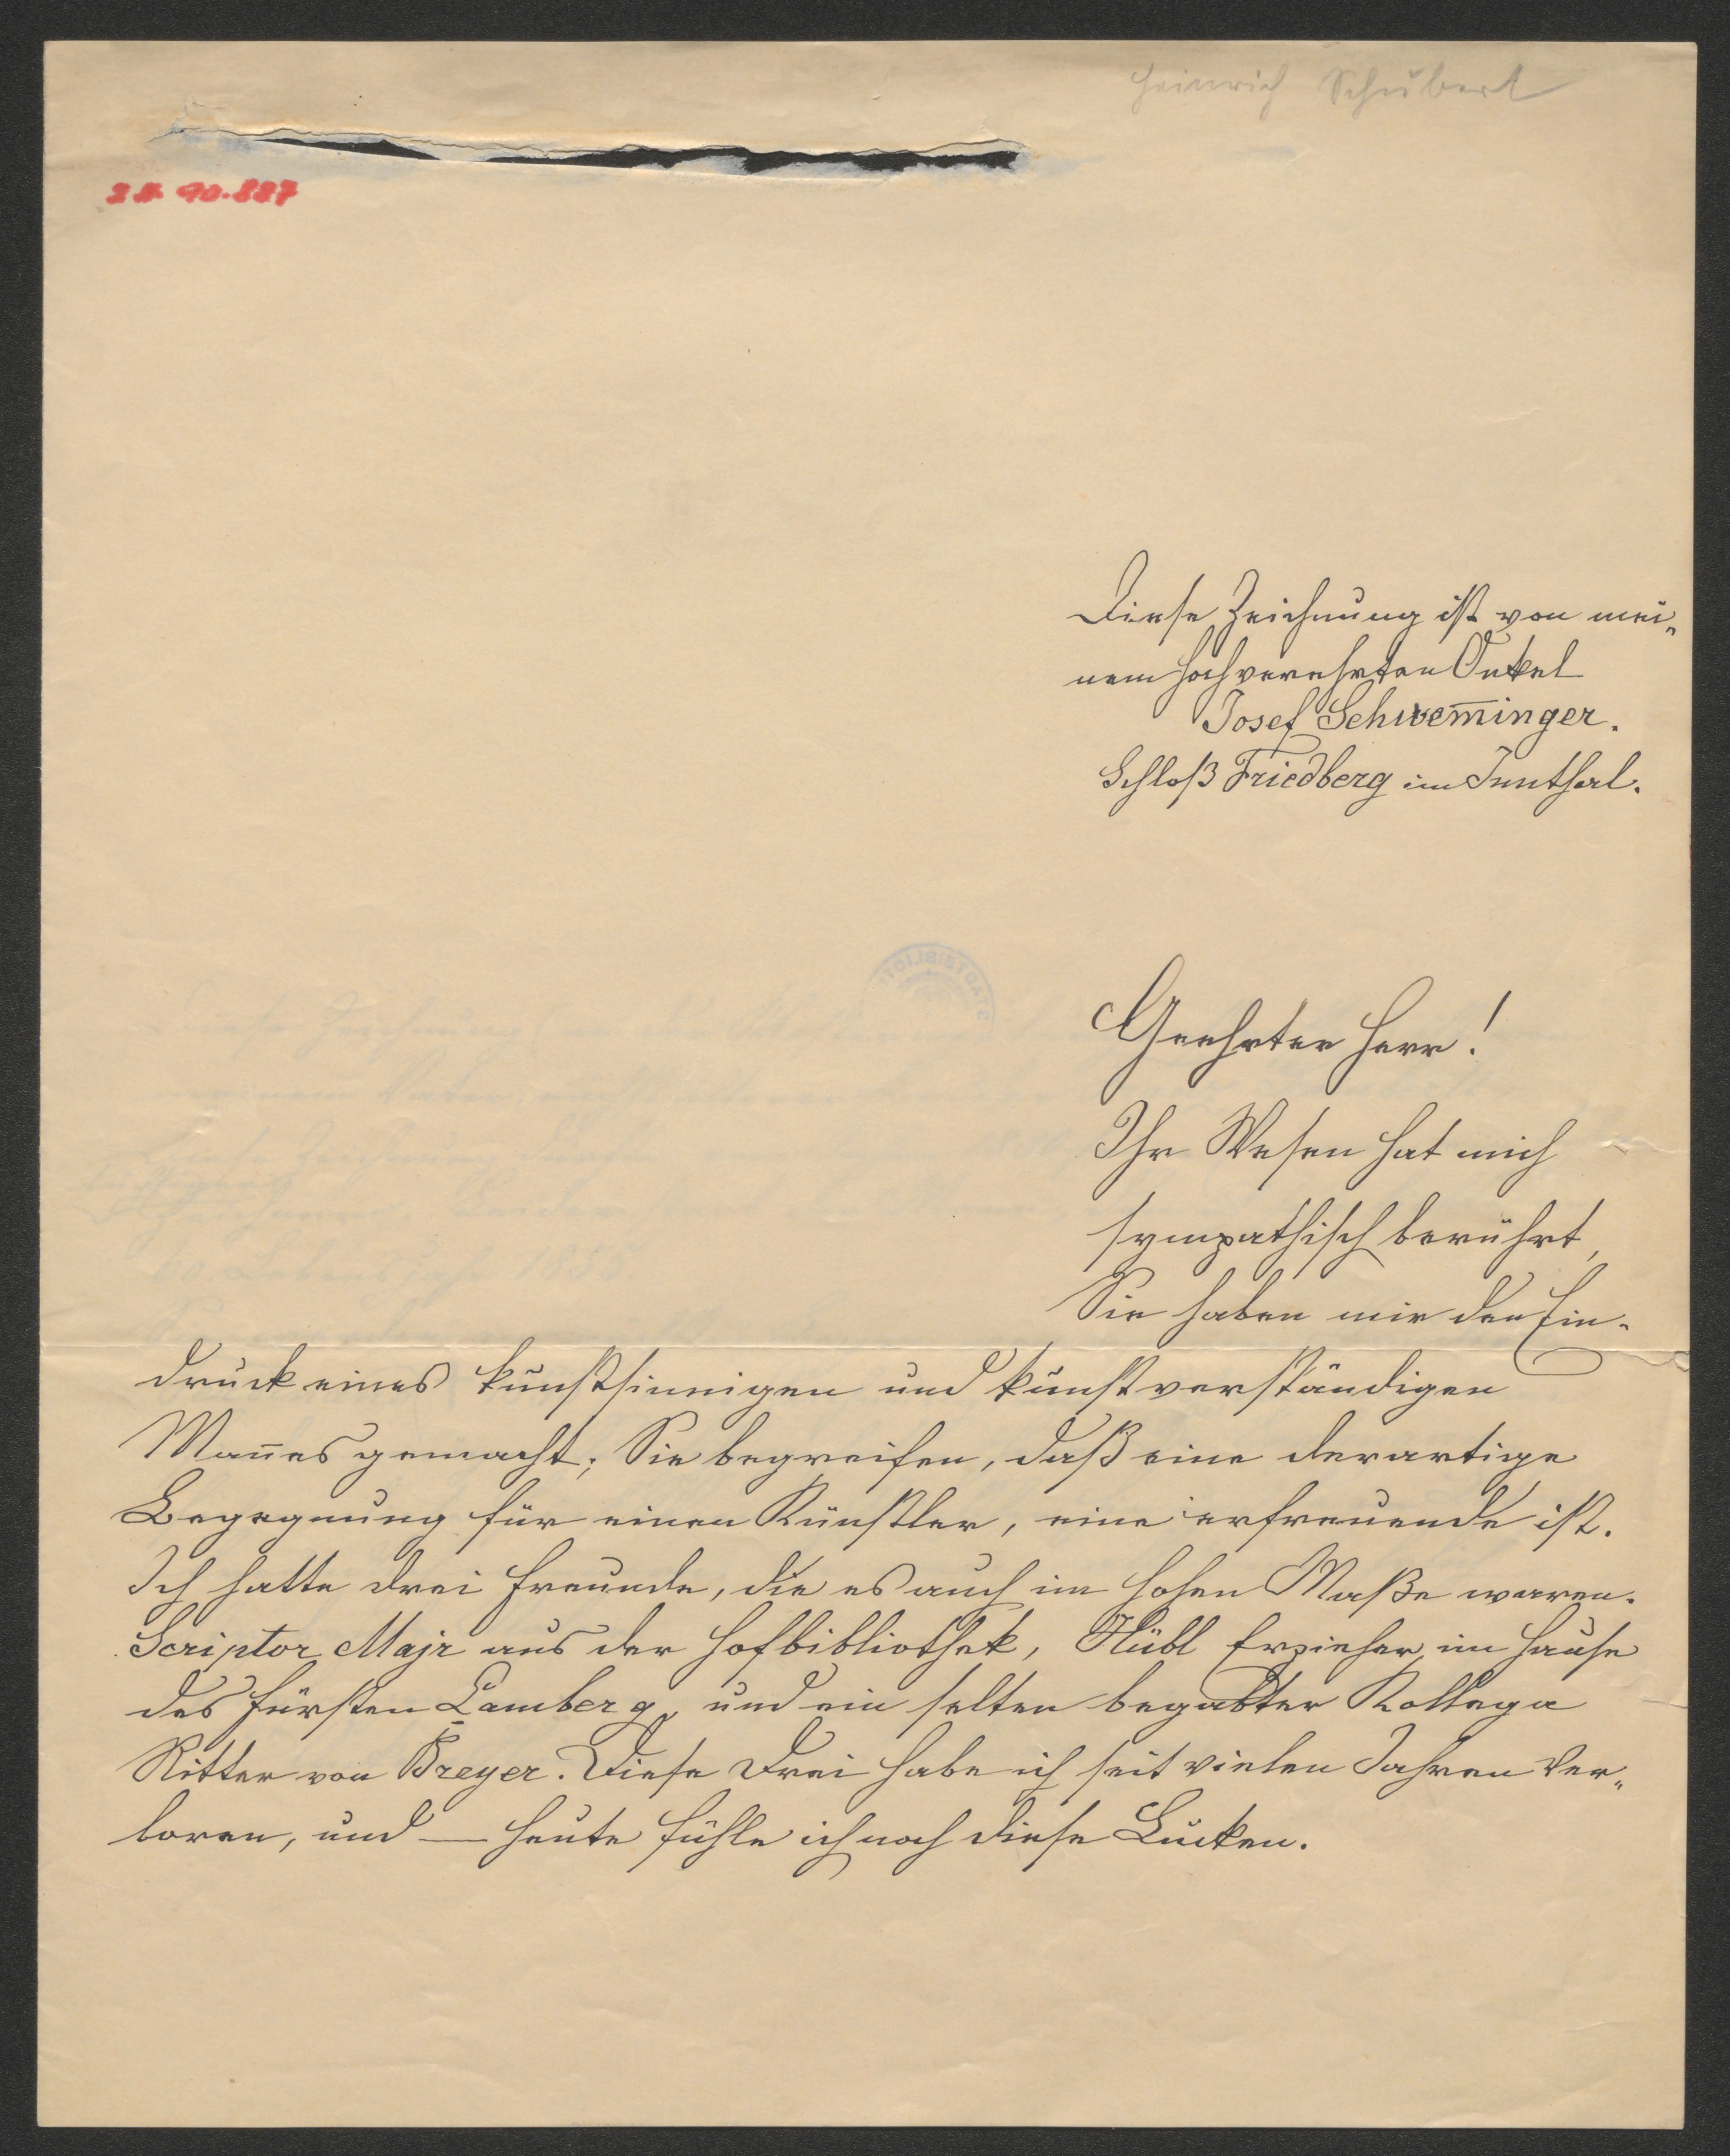 Heinrich Schubert
Diese Zeichnung ist von mei„
nem hochverehrten Onkel
Josef Schwem̅inger.
Schloß Friedberg im Innthal.
Geehrter Herr!
Ihr Wesen hat mich
sympathisch berührt,
Sie haben mir den Ein„
druck eines kunstsinnigen und kunstverständigen
Man̅es gemacht; Sie begreifen, daß eine derartige
Begegnung für einen Künstler, eine erfreuende ist.
Ich hatte drei Freunde, die es auch im hohen Maße waren.
Scriptor Majr aus der Hofbibliothek, Hübl Erzieher im Hause
des Fürsten Lamberg, und ein selten begabter Kollega
Ritter von Breyer. Diese Drei habe ich seit vielen Jahren ver„
loren, und — heute fühle ich noch diese Lücken.